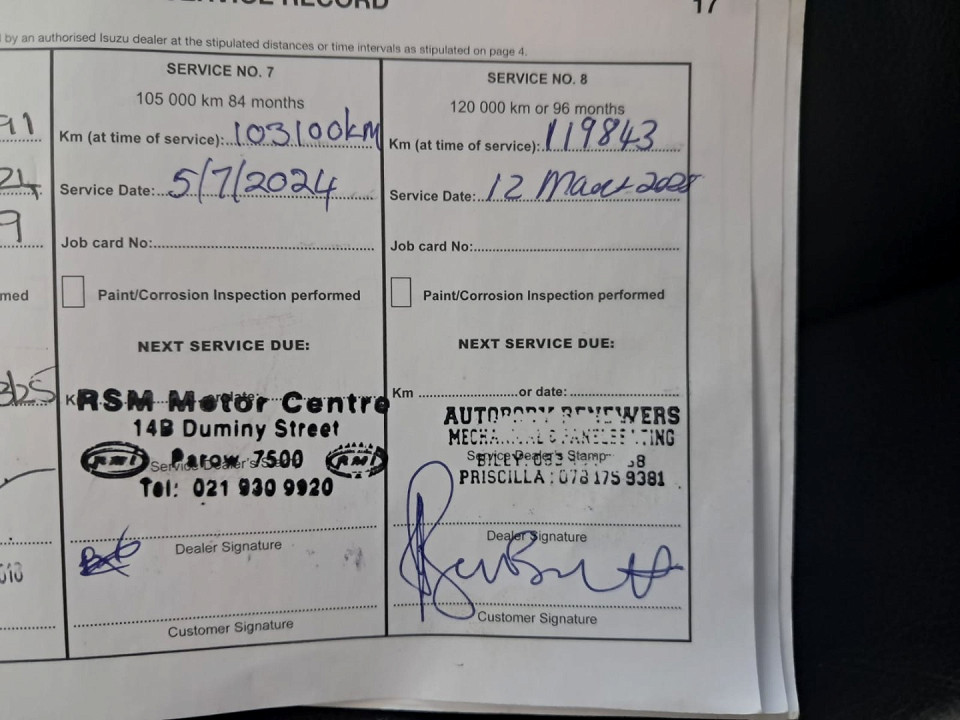 SERVICE RECORD
17
by an authorised Isuzu dealer at the stipulated distances or time intervals as stipulated on page 4.
91
24
9
med
365
SERVICE NO. 7
105 000 km 84 months
Km (at time of service): 103100km
Service Date: 5/7/2024
Job card No:
Paint/Corrosion Inspection performed
NEXT SERVICE DUE:
RSM Motor Centre
14B Duminy Street
Parow 7500
RMI
RMI
Service Dealer's
Tel: 021 930 9920
Dealer Signature
Customer Signature
SERVICE NO. 8
120 000 km or 96 months
Km (at time of service): 119843
Service Date: 12 March 2025
Job card No:
Paint/Corrosion Inspection performed
NEXT SERVICE DUE:
Km or date:
AUTOBODY RENEWERS
MECHANICAL & PANELBEATING
Service Dealer's Stamp
BILLY: 68
PRISCILLA: 078 175 9381
Dealer Signature
Customer Signature